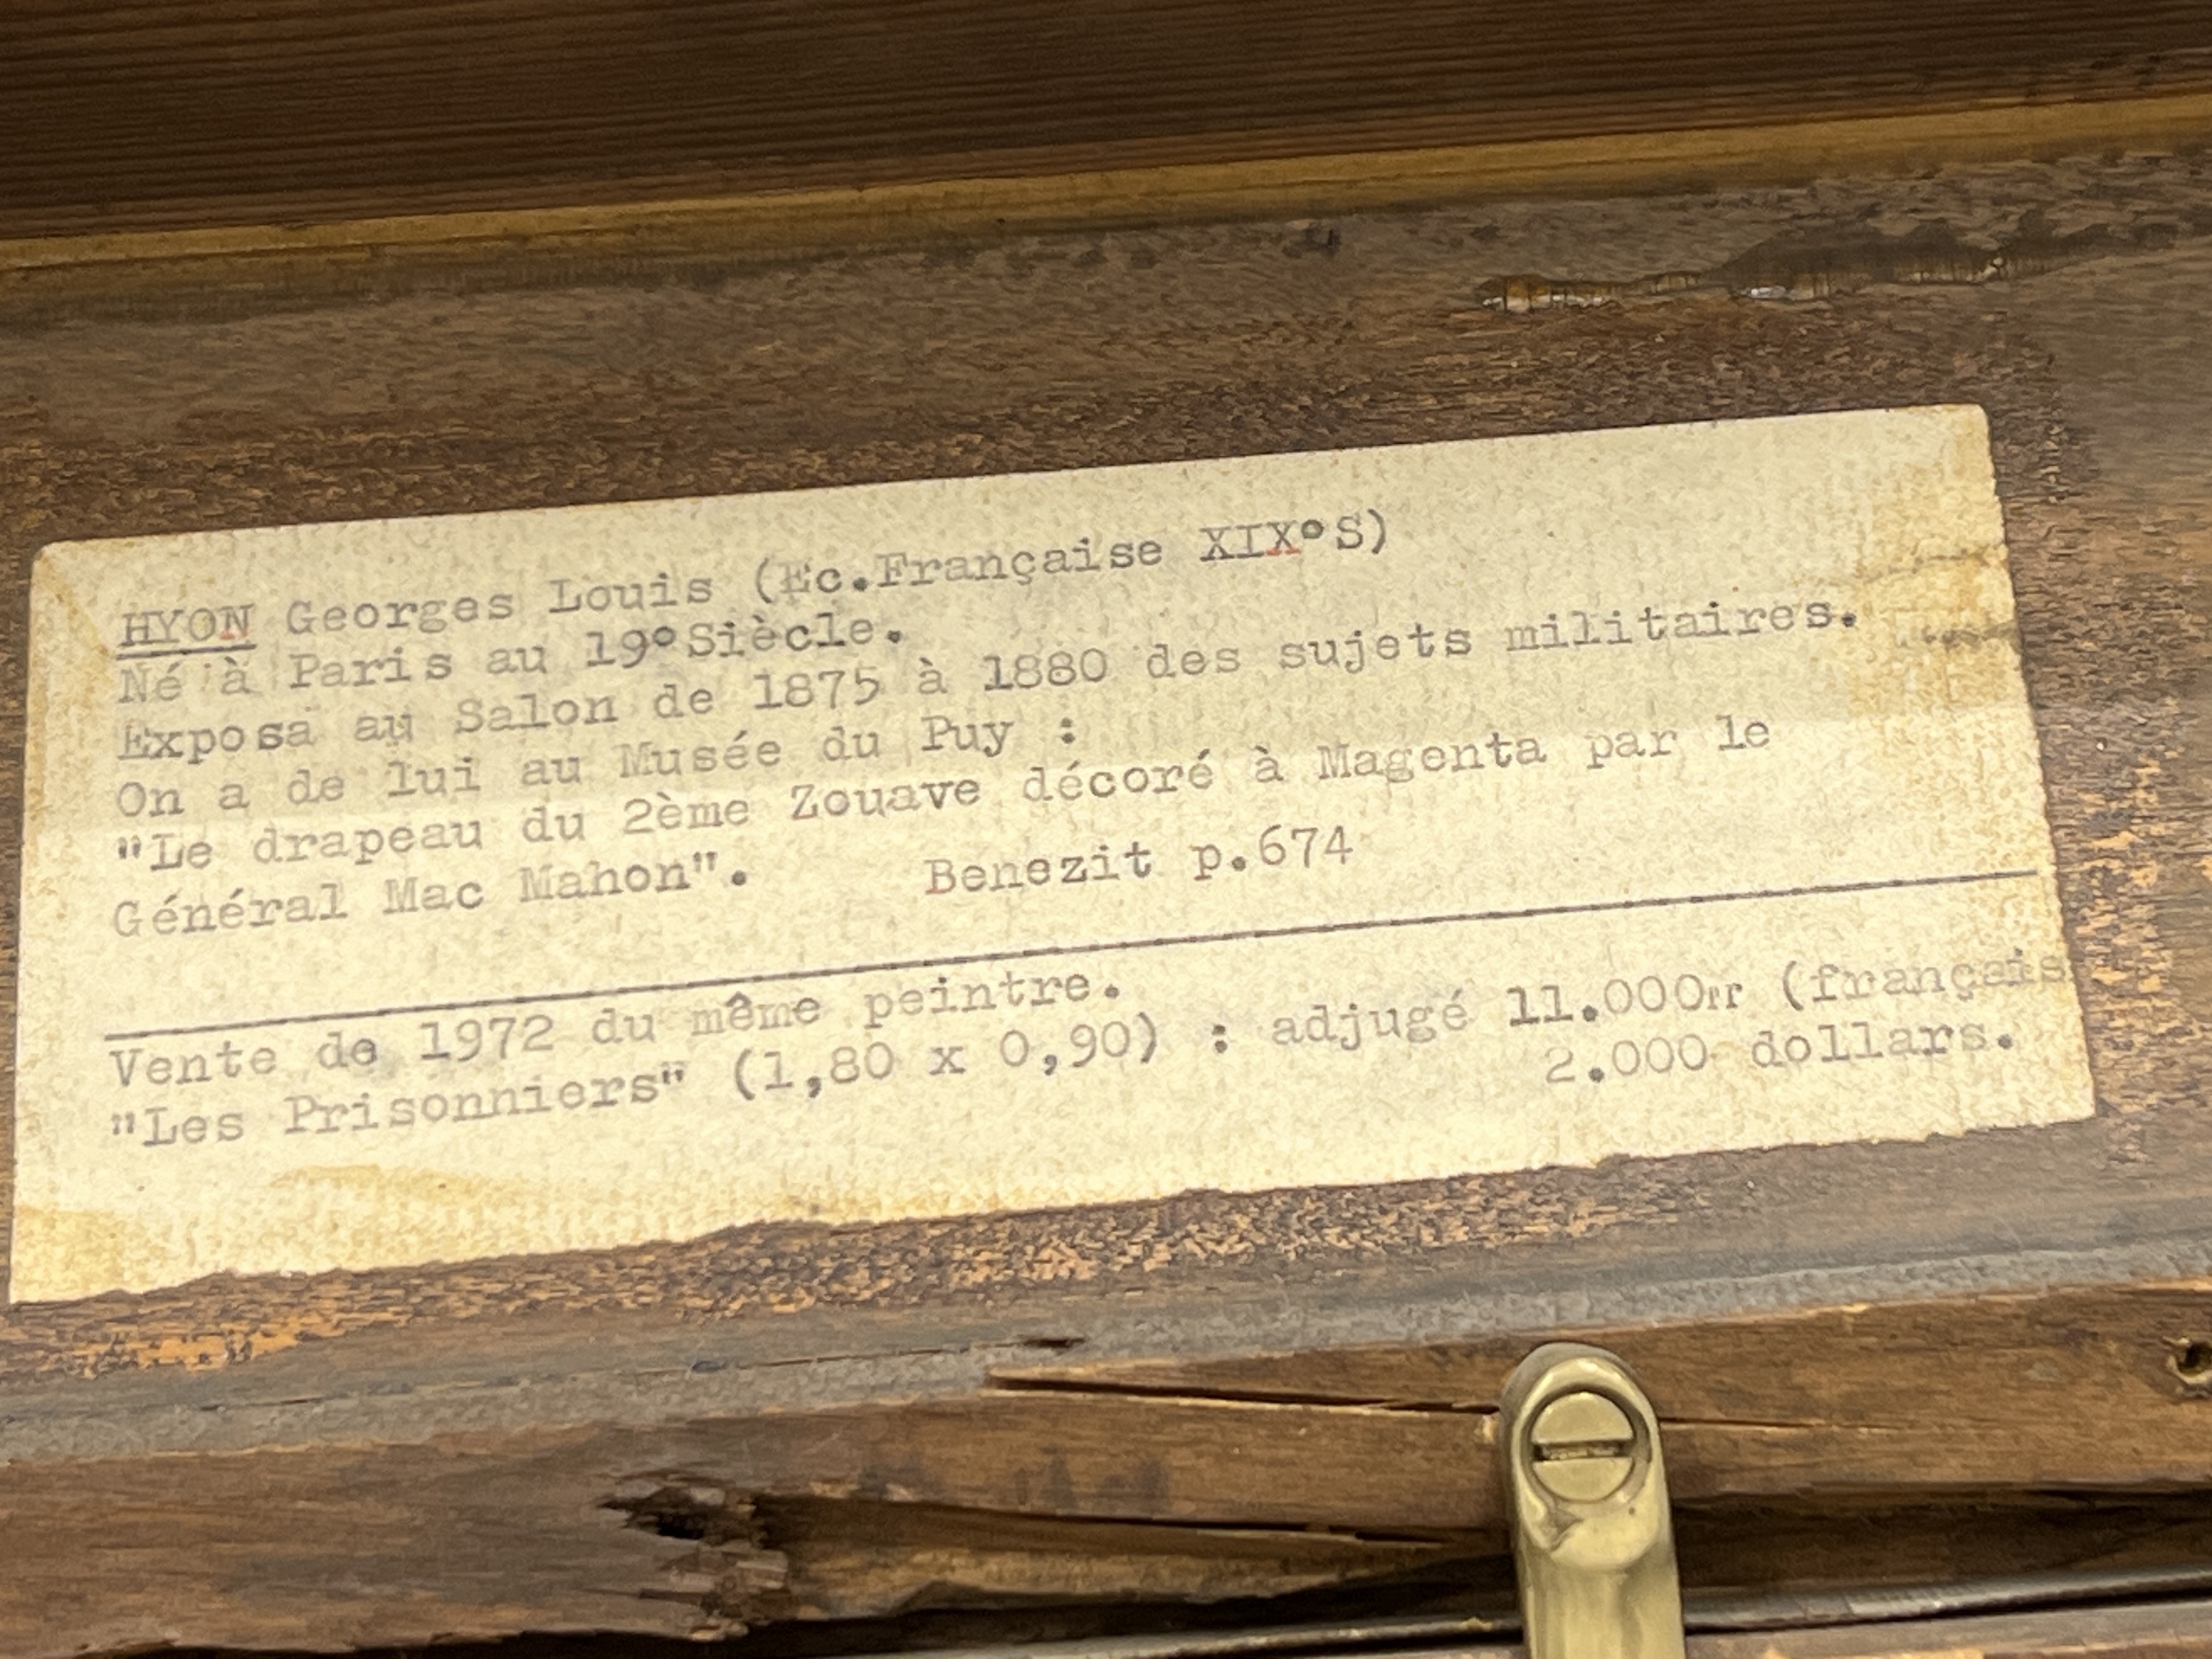 HYON Georges Louis (Ec.Française XIX°S)
Né à Paris au 19°Siècle.
Exposa au Salon de 1875 à 1880 des sujets militaires.
On a de lui au Musée du Puy :
"Le drapeau du 2ème Zouave décoré à Magenta par le
Général Mac Mahon". Benezit p.674
Vente de 1972 du même peintre.
"Les Prisonniers" (1,80 x 0,90) : adjugé 11.000Fr (français
2.000 dollars.